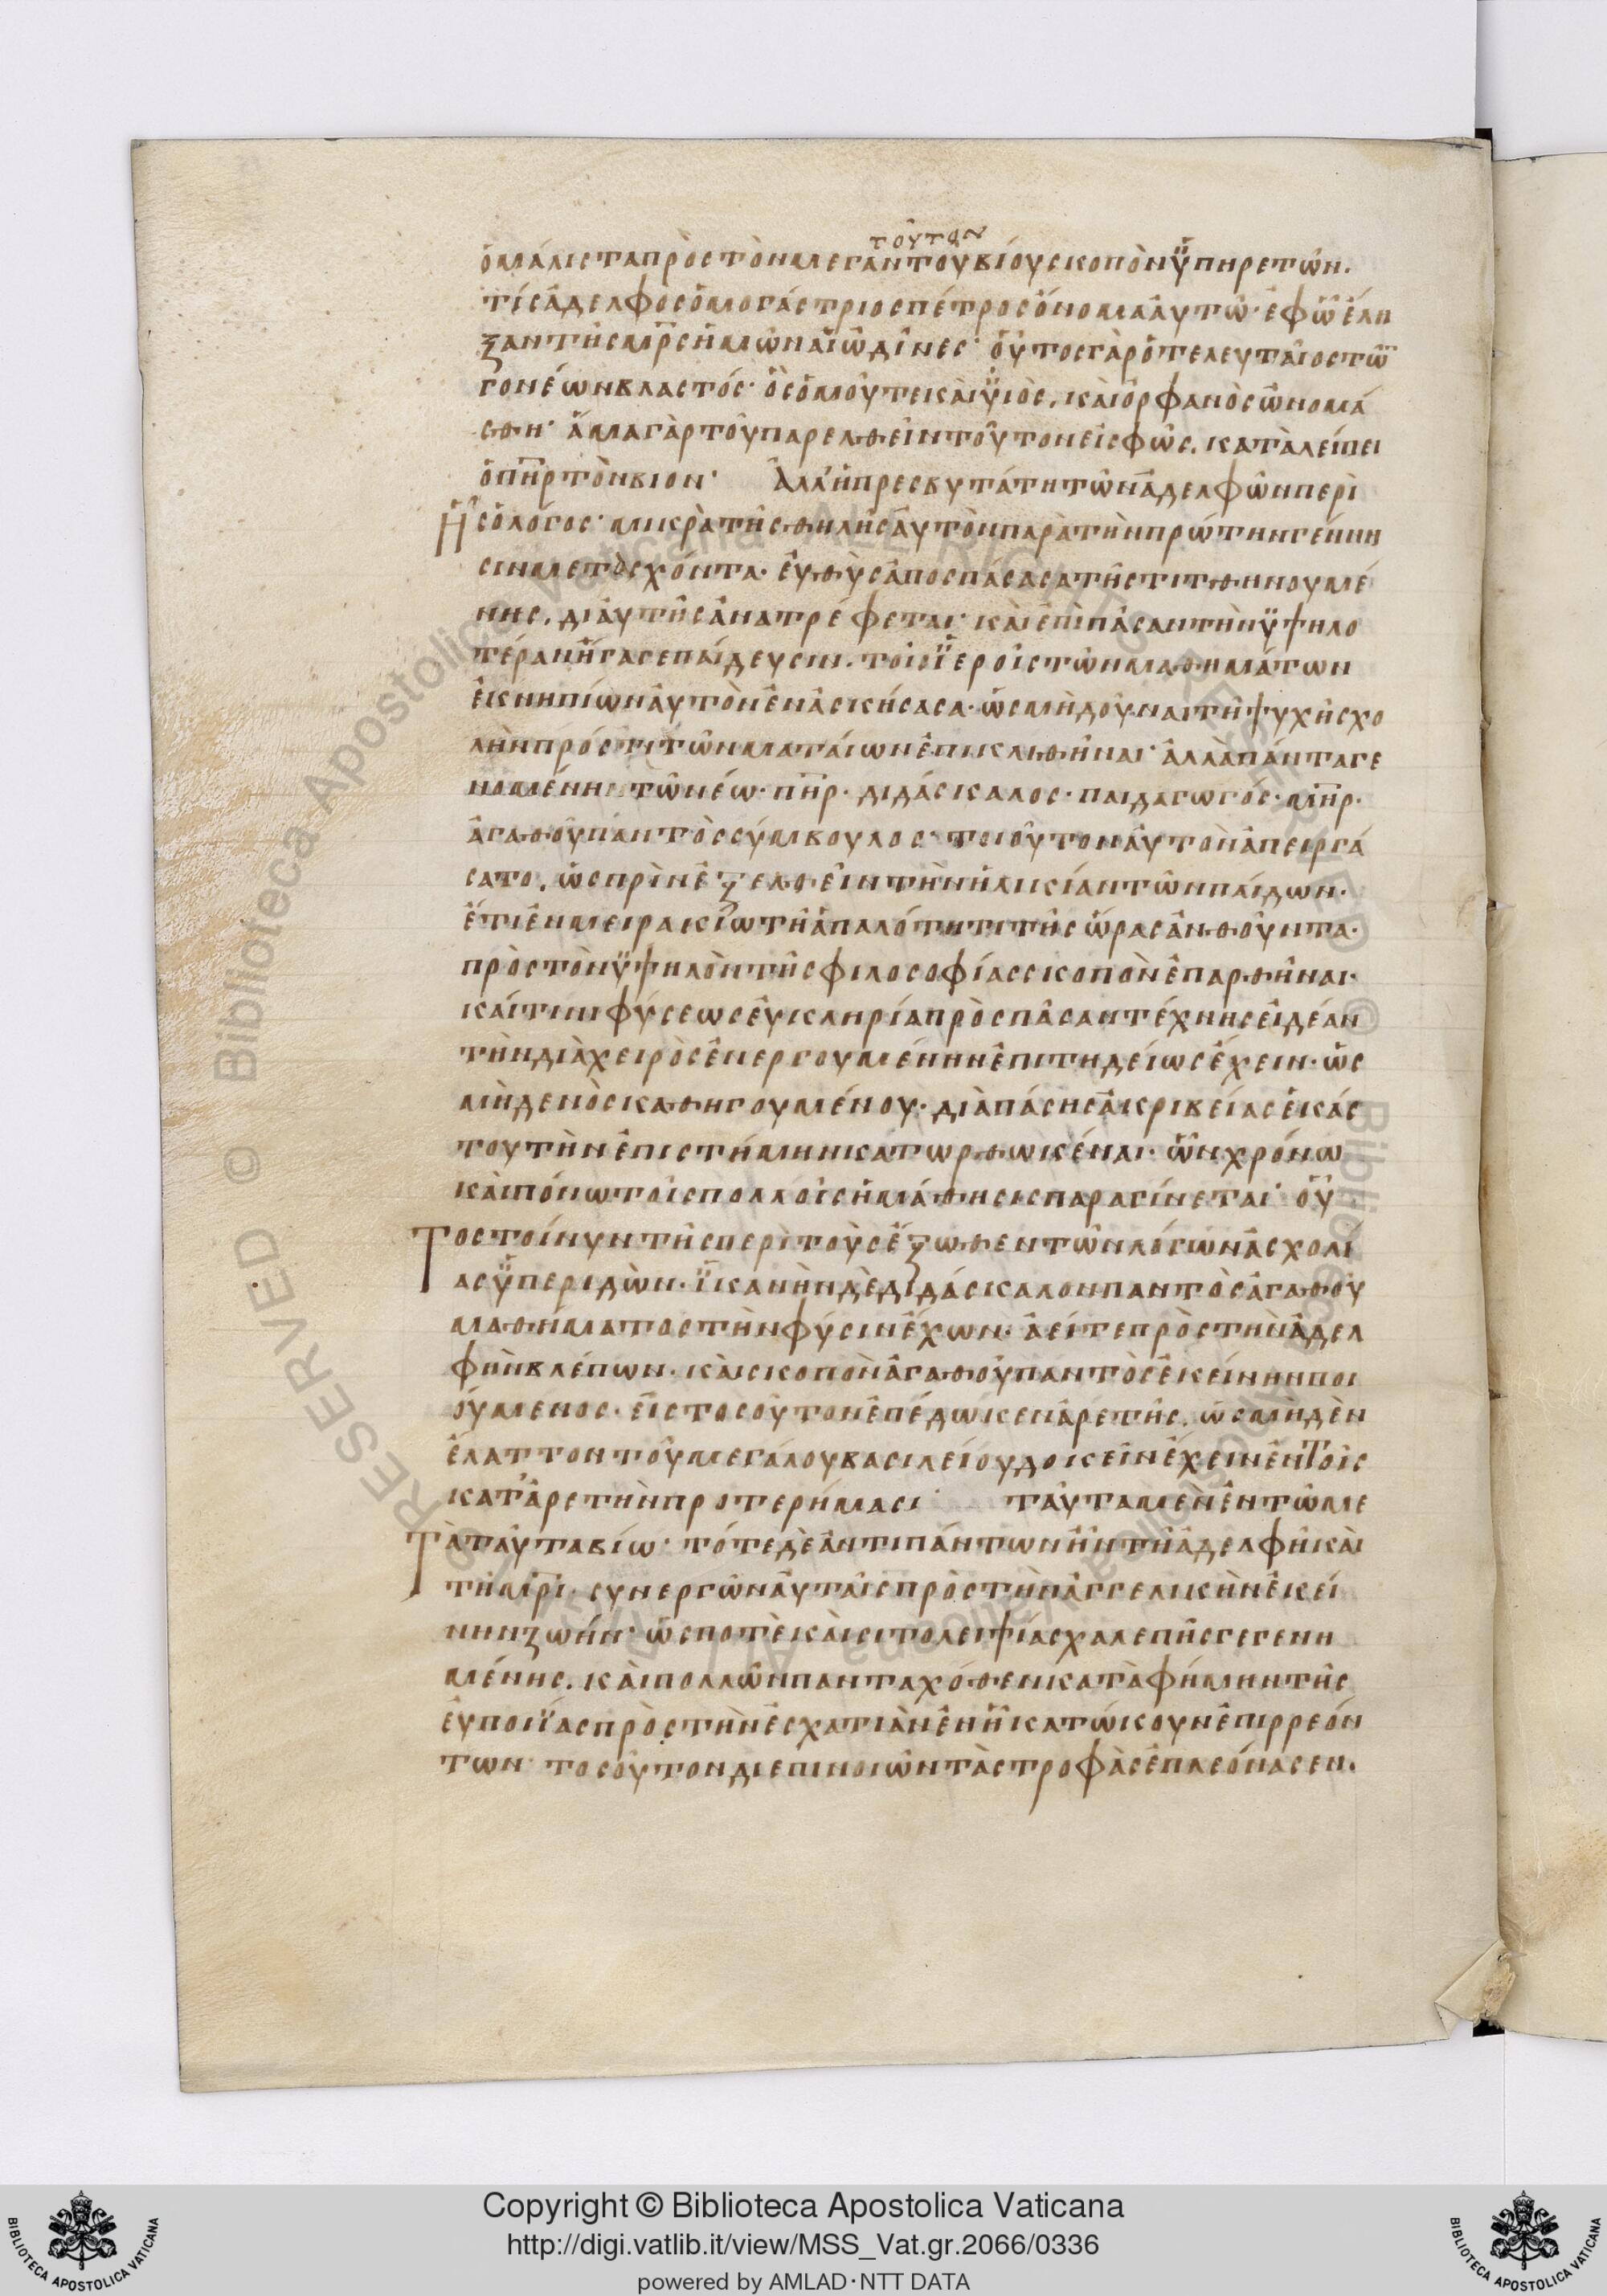 τούτων
ὁ μάλιστα πρὸς τὸν μέγαν τοῦ βίου σκοπὸν ὑπηρετῶν.
τίς ἀδελφος ὁμογάστριος πέτρος ὄνομα αὐτῶ· ἐφ ὧ ἔλη
ξαν τῆς μρ̅ς ἡμῶν αἱ ὠδῖνες· οὗτος γὰρ ὁ τελευταῖος τῶ̅
γονέων βλαστός· ὃς ὁμοῦ τε καὶ ὑιὸς, καὶ ὀρφανὸς ὠνομά
σθη· ἅμα γὰρ τοῦ παρελθεῖν τοῦτον εἰς φῶς, καταλείπει
ὁ πη̅ρ τὸν βιον· Ἀλλ' ἡ πρεσβυτάτη τῶν ἀδελφῶν περὶ
ἧς ὁ λόγος· μικρὰ τῆς θηλῆς αὐτὸν παρὰ τὴν πρώτην γέννη
σιν μετασχόντα· εὐθὺς ἀποσπάσασα τῆς τιτθηνουμέ
νης, δι αὐτῆς ἀνατρέφεται· καὶ ἐπὶ πᾶσαν τὴν ὑψηλο
τέραν ἤγαγε παίδευσιν. τοῖς ἱεροῖς τῶν μαθημάτων
ἐκ νηπίων αὐτὸν ἐνασκήσασα· ὡς μὴ δοῦναι τῆ ψυχῆ σχο
λὴν πρός τι τῶν ματαίων ἐπικληθῆναι· ἀλλὰ πάντα γε
νομένη τῶ νέω· πη̅ρ· διδάσκαλος· παιδαγωγός· μη̅ρ·
ἀγαθοῦ παντὸς σύμβουλος· τοιοῦτον αὐτὸν ἀπειργά
σατο, ὡς πρὶν ἐξελθεῖν τὴν ἡλικίαν τῶν παίδων·
ἔτι ἐν μειρακίω τῆ ἁπαλότητι τῆς ὥρας ἀνθοῦντα·
πρὸς τὸν ὑψηλὸν τῆς φιλοσοφίας σκοπὸν ἐπαρθῆναι·
καί τινι φύσεως εὐκληρία πρὸς πᾶσαν τέχνης εἰδέαν
τὴν διὰ χειρὸς ἐνεργουμένην ἐπιτηδείως ἔχειν· ὡς
μηδενὸς καθηγουμένου· διὰ πάσης ἀκριβείας ἑκάσ
του τὴν ἐπιστήμην κατωρθωκέναι· ὧν χρόνω
καὶ πόνω τοῖς πολλοῖς ἡ μάθησις παραγίνεται· οὗ
τος τοίνυν τῆς περὶ τοὺς ἔξωθεν τῶν λόγων ἀσχολί
ας ὑπεριδὼν. ἱκανὴν δὲ διδάσκαλον παντὸς ἀγαθοῦ
μαθήματος τὴν φύσιν ἔχων. ἀεί τε πρὸς τὴν ἀδελ
φὴν βλέπων. καὶ σκοπὸν ἀγαθοῦ παντὸς ἐκείνην ποι
ούμενος. εἰς τοσοῦτον ἐπέδωκεν ἀρετῆς, ὡς μηδὲν
ἔλαττον τοῦ μεγάλου βασιλείου δοκεῖν ἔχειν ἐν τοῖς
κατ' ἀρετὴν προτερήμασι· ταῦτα μὲν ἐν τῶ με
τὰ ταῦτα βίω· τότε δὲ ἀντὶ πάντων ἦν τῆ ἀδελφῆ καὶ
τῆ μρ̅ι. συνεργῶν αὐταῖς πρὸς τὴν ἀγγελικὴν ἐκεί
νην ζωήν· ὥς ποτὲ καὶ σιτολειψίας χαλεπῆς γεγενη
μένης, καὶ πολλῶν πανταχόθεν κατὰ φήμην τῆς
εὐποιΐας πρὸς τὴν ἐσχατιὰν ἐν ἧ κατώκουν ἐπιρρεόν
των· τοσοῦτον δι ἐπινοιῶν τὰς τροφὰς ἐπλεόνασεν.
Copyright © Biblioteca Apostolica Vaticana
http://digi.vatlib.it/view/MSS_Vat.gr.2066/0336
powered by AMLAD·NTT DATA